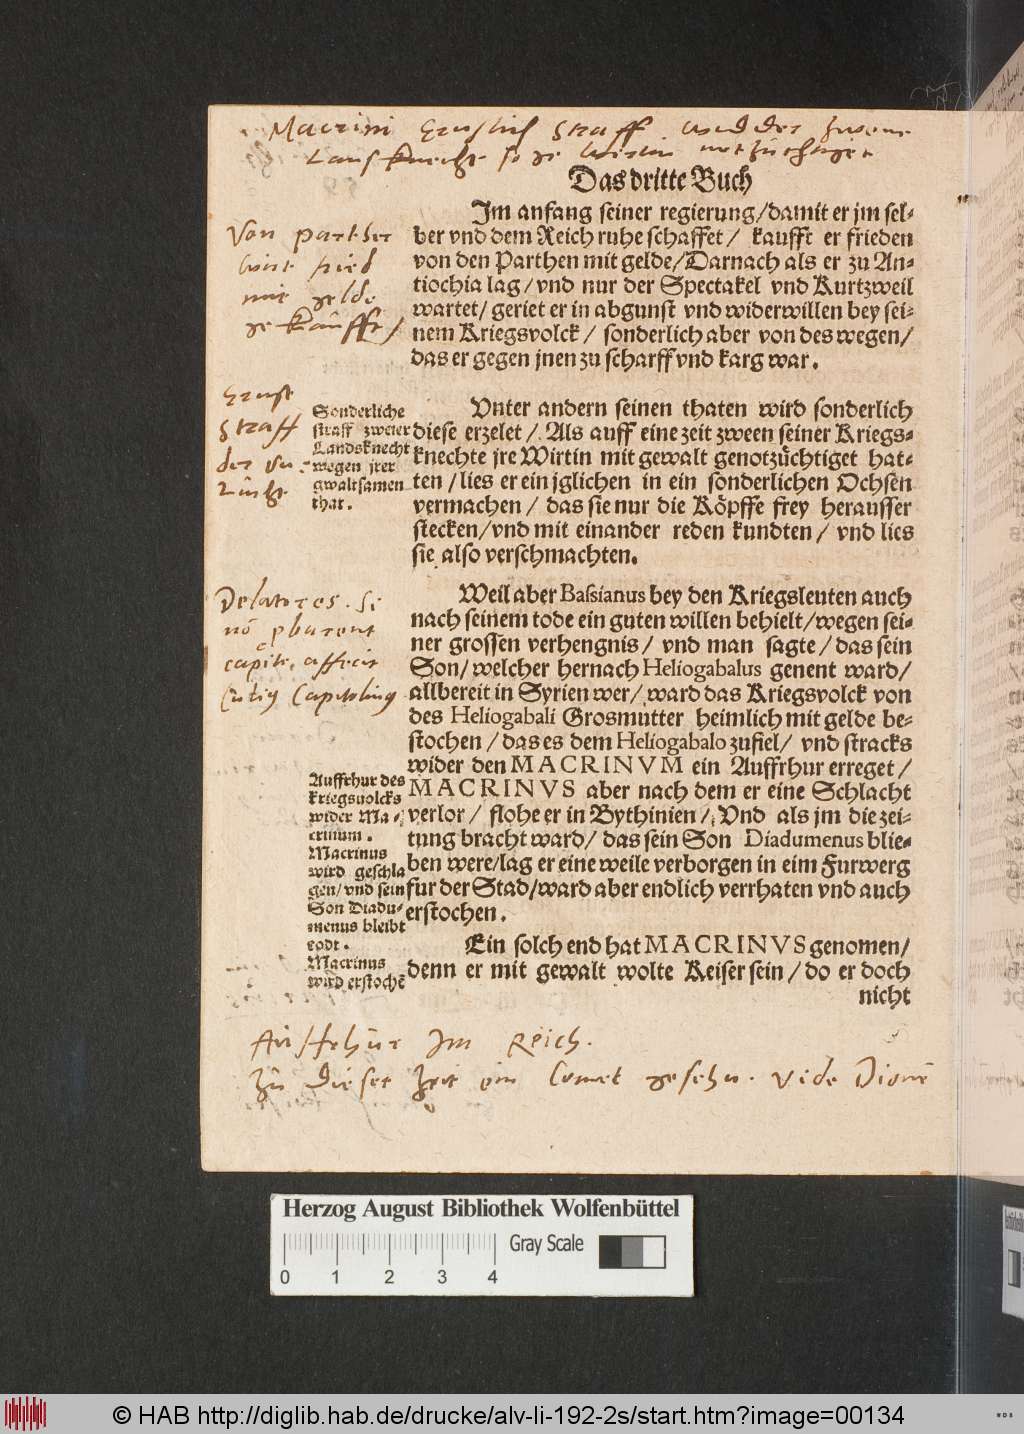 Macrini Ernstliche Straff widder zweene
Landsknechte so je Wirtin notzüchtiget
Das dritte Buch
Im anfang seiner regierung/damit er jm sel⸗
ber vnd dem Reich ruhe schaffet/ kaufft er frieden
von den Parthen mit gelde/Darnach als er zu An⸗
tiochia lag/vnd nur der Spectakel vnd Kurtzweil
wartet/geriet er in abgunst vnd widerwillen bey sei⸗
nem Kriegsvolck/ sonderlich aber von des wegen/
das er gegen jnen zu scharff vnd karg war.
Von parther
wirt fried
mit gelde
gekaufft/
Ernst
Straff
der vn⸗
zucht
Sonderliche
straff zweier
Landsknecht
wegen jrer
gwaltsamen
that.
Vnter andern seinen thaten wird sonderlich
diese erzelet/ Als auff eine zeit zween seiner Kriegs⸗
knechte jre Wirtin mit gewalt genotzüchtiget hat⸗
ten/lies er ein jglichen in ein sonderlichen Ochsen
vermachen/ das sie nur die Köpffe frey herausser
stecken/vnd mit einander reden kundten/ vnd lies
sie also verschmachten.
Delatores. si
nō pbarent
capite affecit
Capitolinus
Weil aber Bassianus bey den Kriegsleuten auch
nach seinem tode ein guten willen behielt/wegen sei⸗
ner grossen verhengnis/ vnd man sagte/das sein
Son/welcher hernach Heliogabalus genent ward/
allbereit in Syrien wer/ward das Kriegsvolck von
des Heliogabali Grosmutter heimlich mit gelde be⸗
stochen/das es dem Heliogabalo zufiel/ vnd stracks
wider den MACRINVM ein Auffrhur erreget/
MACRINVS aber nach dem er eine Schlacht
verlor/ flohe er in Bythinien/Vnd als jm die zei⸗
tung bracht ward/das sein Son Diadumenus blie⸗
ben were/lag er eine weile verborgen in eim Furwerg
fur der Stad/ward aber endlich verrhaten vnd auch
erstochen.
Auffrhur des
kriegsuolcks
wider Ma⸗
crinum.
Macrinus
wird geschla
gen/vnd sein
Son Diadu⸗
menus bleibt
todt.
Macrinus
wird erstochē
Ein solch end hat MACRINVS genomen/
denn er mit gewalt wolte Keiser sein/do er doch
nicht
Auffrhür Im Reich.
Zu dieser Zeit ein Comet gesehn. Vide Dionē
Herzog August Bibliothek Wolfenbüttel
Gray Scale
0 1 2 3 4
© HAB http://diglib.hab.de/drucke/alv-li-192-2s/start.htm?image=00134